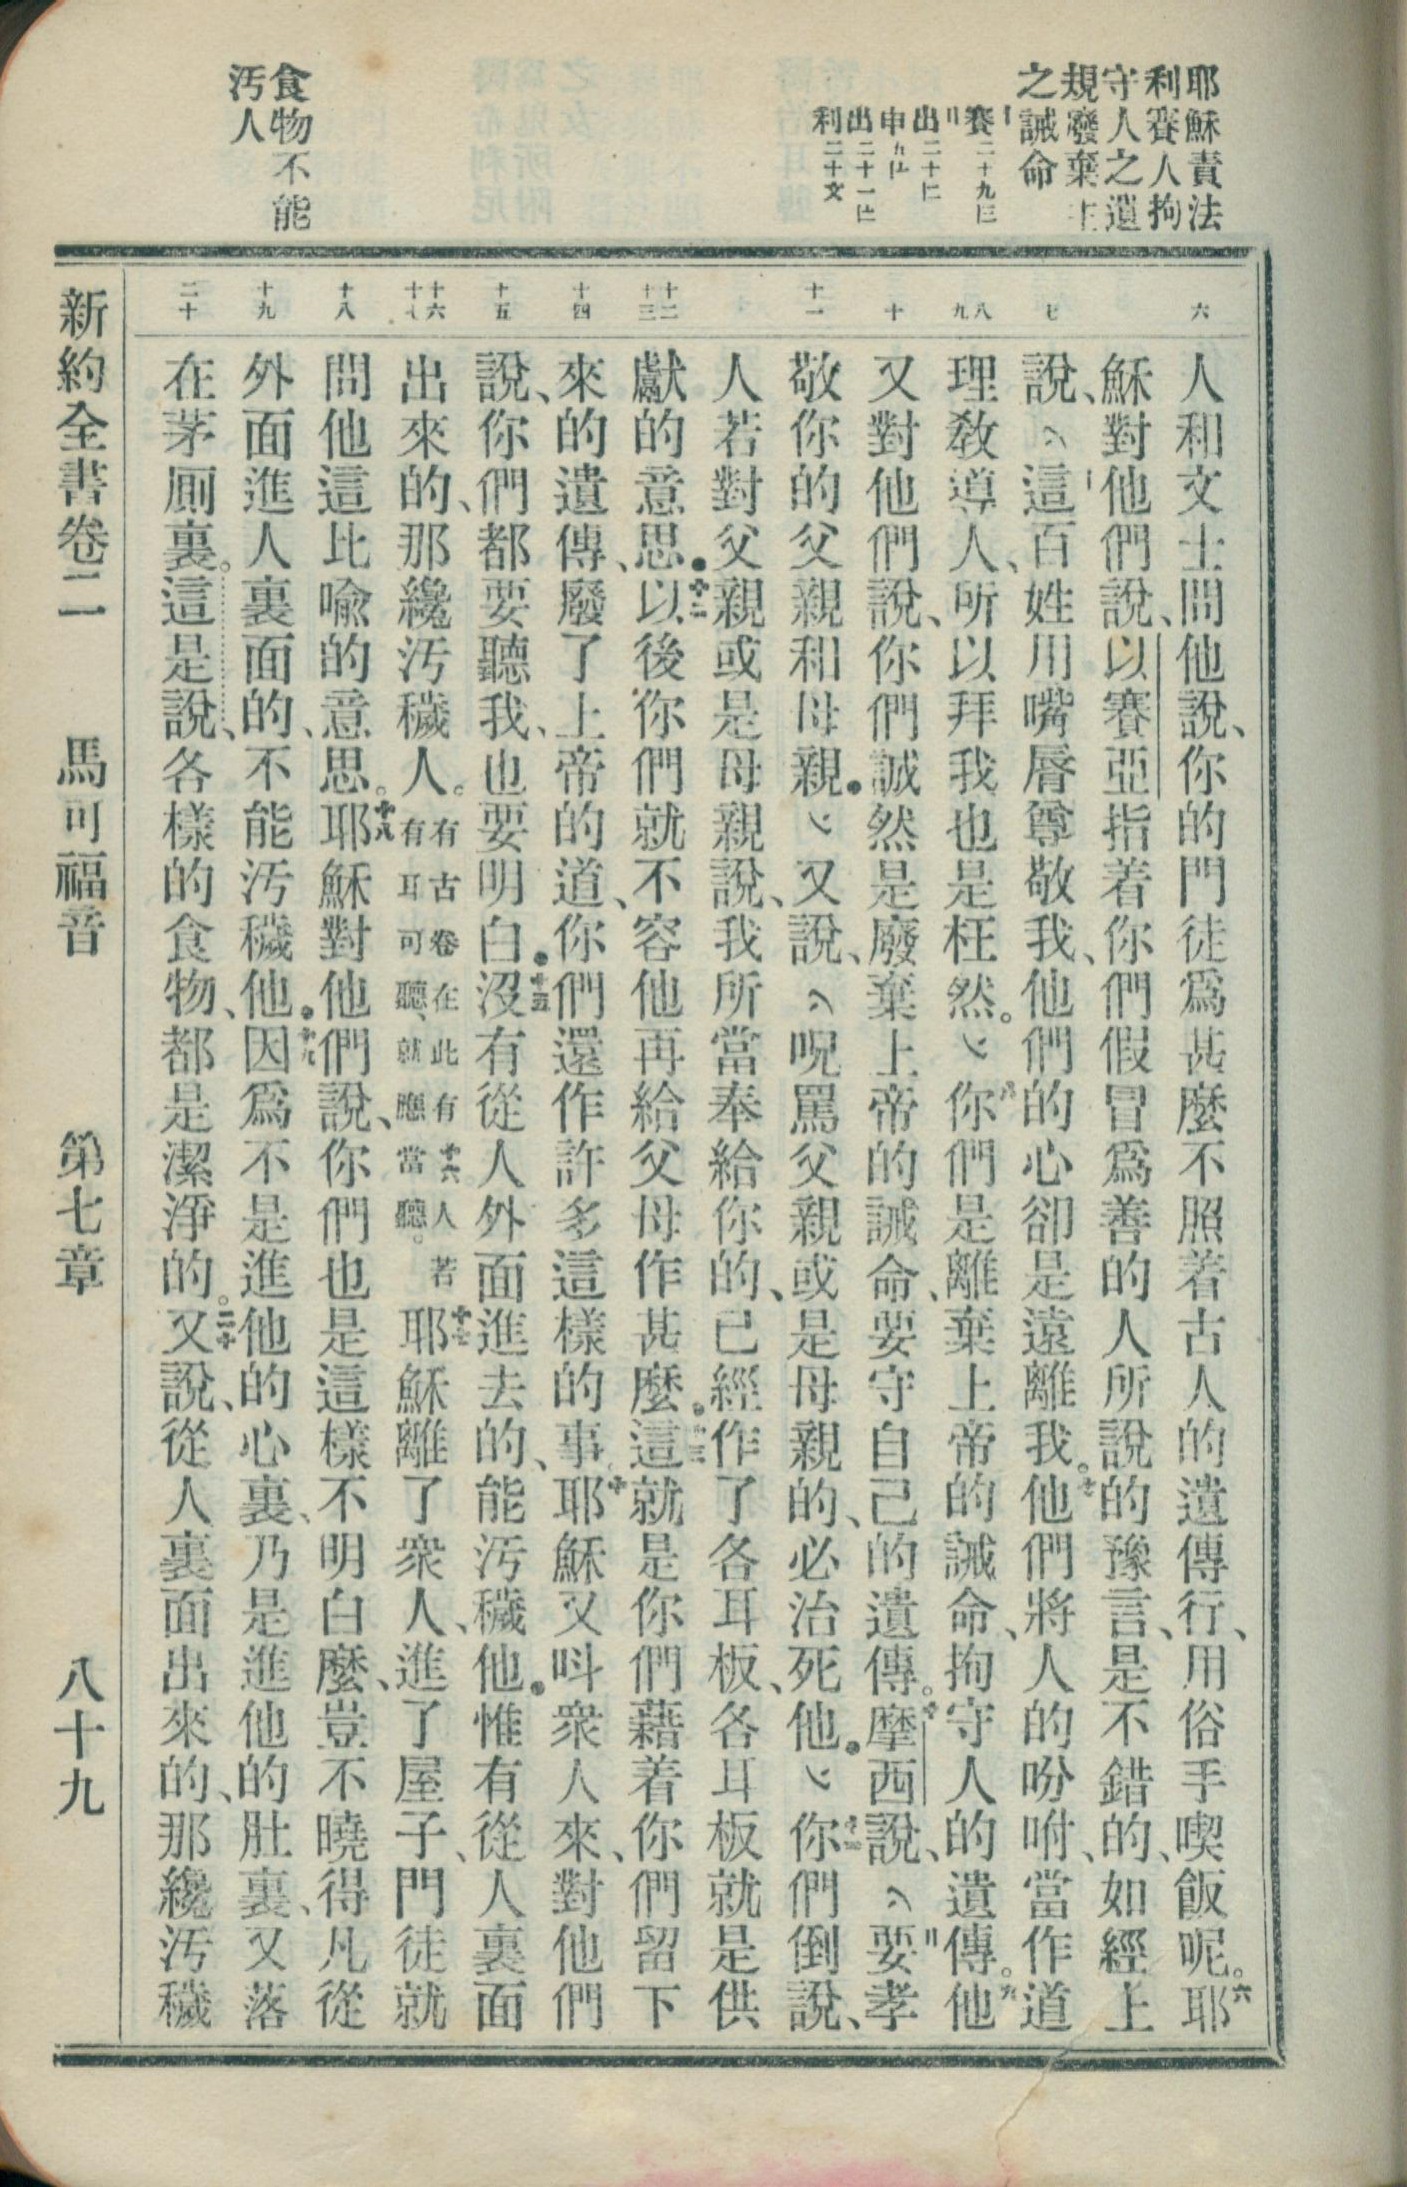 耶穌責法
利賽人拘
守人之遺
規廢棄主
之誡命
賽二十九
出二十
申五
出二十一
利二十
食物不能
汚人
六
七
八
九
十
十一
十二
十三
十四
十五
十六
十七
十八
十九
二十
人和文士問他說、你的門徒爲甚麼不照着古人的遺傳行、用俗手喫飯呢。六耶
穌對他們說、以賽亞指着你們假冒爲善的人所說的豫言、是不錯的、如經上
說、這百姓用嘴脣尊敬我、他們的心卻是遠離我。七他們將人的吩咐、當作道
理敎導人、所以拜我也是枉然。八你們是離棄上帝的誡命、拘守人的遺傳。九他
又對他們說、你們誠然是廢棄上帝的誡命、要守自己的遺傳。十摩西說、要孝
敬你的父親和母親。又說、呪罵父親或是母親的、必治死他。十一你們倒說、
人若對父親或是母親說、我所當奉給你的、已經作了各耳板、各耳板就是供
獻的意思。十二以後你們就不容他再給父母作甚麼。十三這就是你們藉着你們留下
來的遺傳、廢了上帝的道、你們還作許多這樣的事。十四耶穌又呌衆人來、對他們
說、你們都要聽我、也要明白。十五沒有從人外面進去的、能汚穢他。惟有從人裏面
出來的、那纔汚穢人。有古卷在此有十六人若有耳可聽、就應當聽。十七耶穌離了衆人、進了屋子、門徒就
問他這比喻的意思。十八耶穌對他們說、你們也是這樣不明白麼、豈不曉得凡從
外面進人裏面的、不能汚穢他。十九因爲不是進他的心裏、乃是進他的肚裏、又落
在茅厠裏。這是說、各樣的食物、都是潔淨的。二十又說、從人裏面出來的、那纔汚穢
新約全書卷二 馬可福音 第七章 八十九